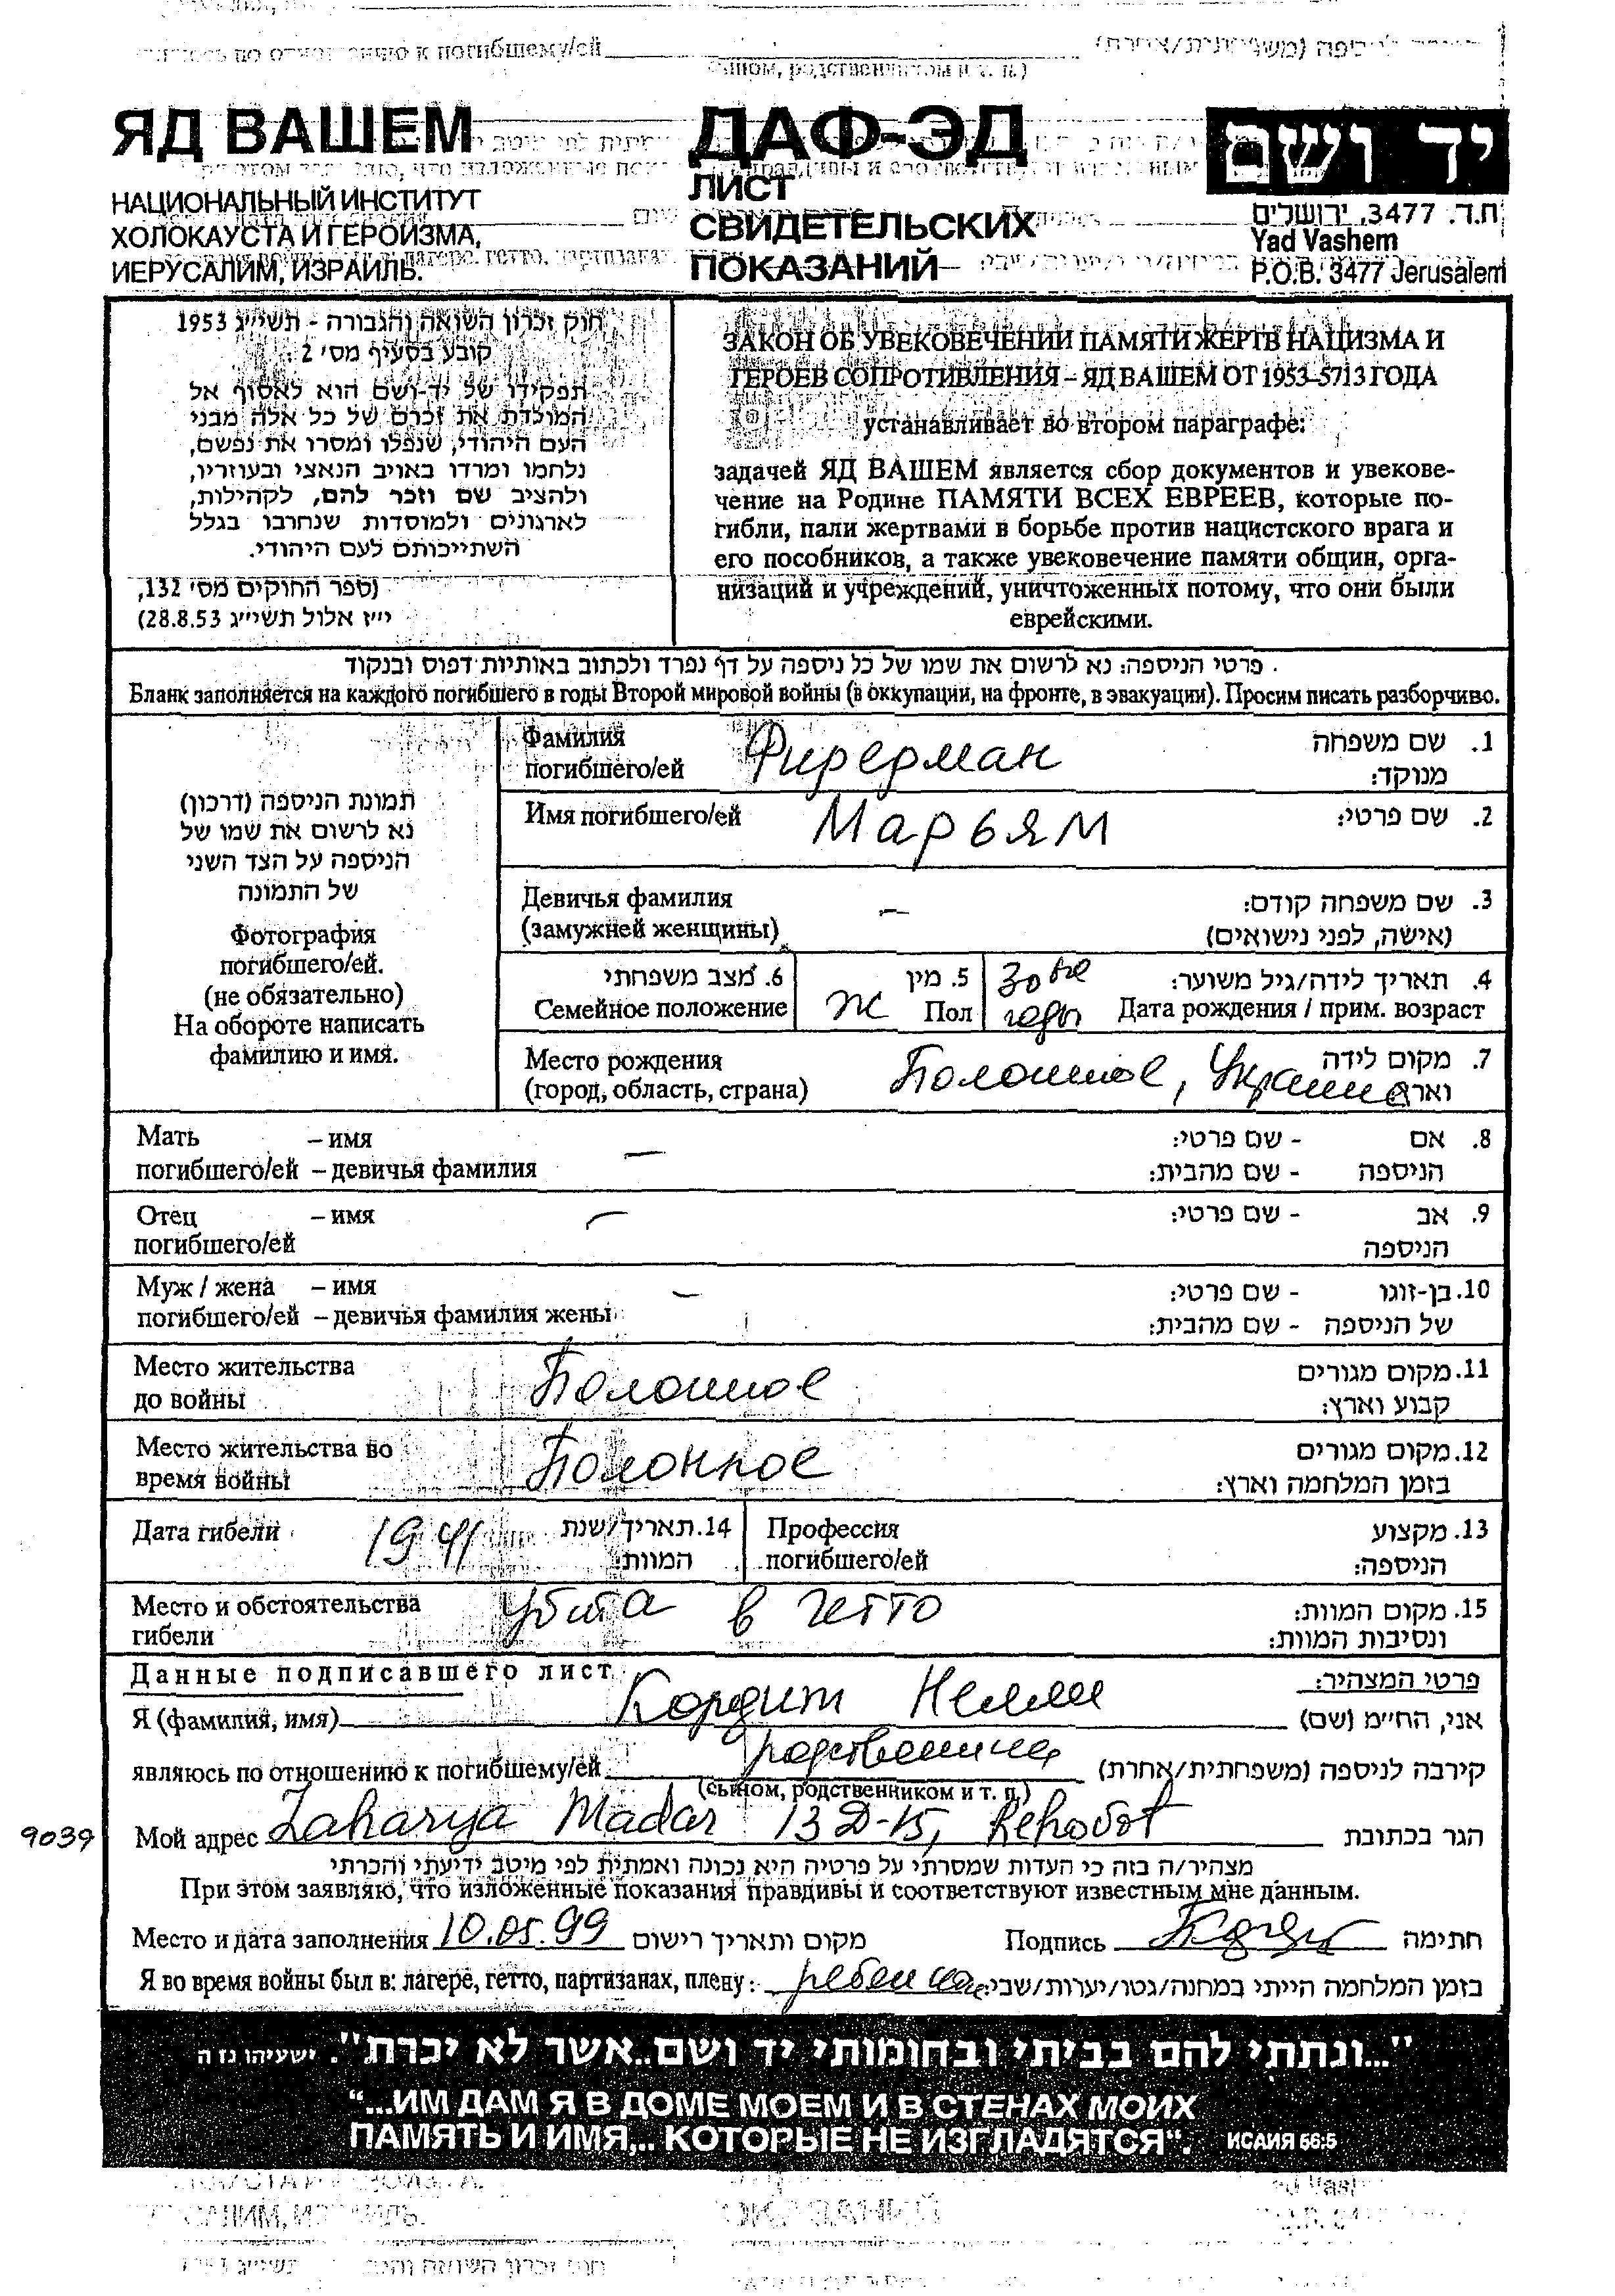 ЯД ВАШЕМ
НАЦИОНАЛЬНЫЙ ИНСТИТУТ
ХОЛОКАУСТА И ГЕРОИЗМА,
ИЕРУСАЛИМ, ИЗРАИЛЬ.
ДАФ-ЭД
ЛИСТ
СВИДЕТЕЛЬСКИХ
ПОКАЗАНИЙ
יד ושם
ת.ד. 3477, ירושלים
Yad Vashem
P.O.B. 3477 Jerusalem
חוק זכרון השואה והגבורה - תשי״ג 1953
קובע בסעיף מס׳ 2
תפקידו של יד-ושם הוא לאסוף אל
המולדת את זכרם של כל אלה מבני
העם היהודי, שנפלו ומסרו את נפשם,
נלחמו ומרדו באויב הנאצי ובעוזריו,
ולהציב שם וזכר להם, לקהילות,
לארגונים ולמוסדות שנחרבו בגלל
השתייכותם לעם היהודי.
(ספר החוקים מס׳ 132,
י״ז אלול תשי״ג 28.8.53)
ЗАКОН ОБ УВЕКОВЕЧЕНИИ ПАМЯТИ ЖЕРТВ НАЦИЗМА И
ГЕРОЕВ СОПРОТИВЛЕНИЯ – ЯД ВАШЕМ ОТ 1953-5713 ГОДА
устанавливает во втором параграфе:
задачей ЯД ВАШЕМ является сбор документов и увекове-
чение на Родине ПАМЯТИ ВСЕХ ЕВРЕЕВ, которые по-
гибли, пали жертвами в борьбе против нацистского врага и
его пособников, а также увековечение памяти общин, орга-
низаций и учреждений, уничтоженных потому, что они были
еврейскими.
פרטי הניספה: נא לרשום את שמו של כל ניספה על דף נפרד ולכתוב באותיות דפוס ובנקוד
Бланк заполняется на каждого погибшего в годы Второй мировой войны (в оккупации, на фронте, в эвакуации). Просим писать разборчиво.
תמונת הניספה (דרכון)
נא לרשום את שמו של
הניספה על הצד השני
של התמונה
Фотография
погибшего/ей.
(не обязательно)
На обороте написать
фамилию и имя.
Фамилия погибшего/ей Фирерман 1. שם משפחה מנוקד:
Имя погибшего/ей Марьям 2. שם פרטי:
Девичья фамилия – 3. שם משפחה קודם:
(замужней женщины) (אישה, לפני נישואים)
6. מצב משפחתי 5. מין 30 ые 4. תאריך לידה/גיל משוער:
Семейное положение Ж Пол годы Дата рождения / прим. возраст
Место рождения 7. מקום לידה
(город, область, страна) Полонное, Украина וארץ
Мать – имя – 8. אם - שם פרטי:
погибшего/ей – девичья фамилия הניספה - שם מהבית:
Отец – имя – 9. אב - שם פרטי:
погибшего/ей הניספה
Муж / жена – имя – 10. בן-זוגו - שם פרטי:
погибшего/ей – девичья фамилия жены של הניספה - שם מהבית:
Место жительства Полонное 11. מקום מגורים
до войны קבוע וארץ:
Место жительства во Полонное 12. מקום מגורים
время войны בזמן המלחמה וארץ:
Дата гибели 1941 14. תאריך/שנת Профессия 13. מקצוע
המוות: погибшего/ей הניספה:
Место и обстоятельства Убита в гетто 15. מקום המוות:
гибели ונסיבות המוות:
Данные подписавшего лист פרטי המצהיר:
Я (фамилия, имя) Кордит Нелли אני, הח״מ (שם)
являюсь по отношению к погибшему/ей родственница קירבה לניספה (משפחתית/אחרת)
(сыном, родственником и т. п.)
9039 Мой адрес Zaharya Madar 13 D-15, Rehovot הגר בכתובת
מצהיר/ה בזה כי העדות שמסרתי על פרטיה היא נכונה ואמתית לפי מיטב ידיעתי והכרתי
При этом заявляю, что изложенные показания правдивы и соответствуют известным мне данным.
Место и дата заполнения 10.05.99 מקום ותאריך רישום Подпись חתימה
Я во время войны был в: лагере, гетто, партизанах, плену: בזמן המלחמה הייתי במחנה/גטו/יערות/שבי:
"...ונתתי להם בביתי ובחומותי יד ושם..אשר לא יכרת". ישעיהו נו ה
“...ИМ ДАМ Я В ДОМЕ МОЕМ И В СТЕНАХ МОИХ
ПАМЯТЬ И ИМЯ... КОТОРЫЕ НЕ ИЗГЛАДЯТСЯ“. ИСАИЯ 56:5